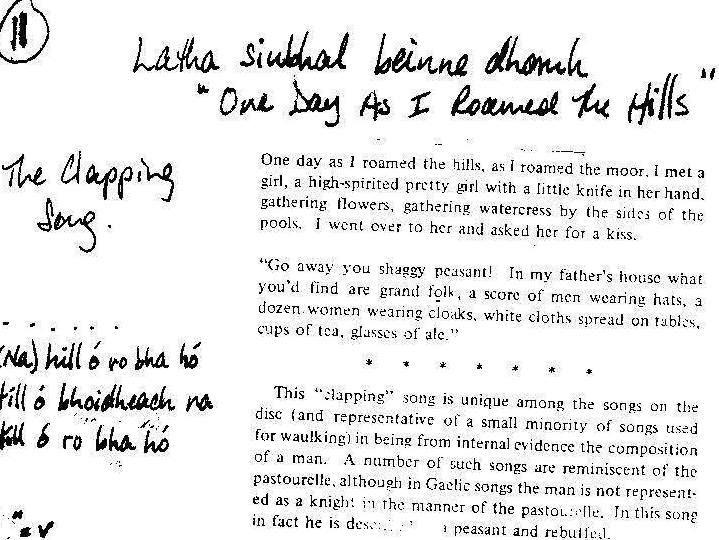 11
Latha siubhal beinne dhomh
"One Day As I Roamed The Hills"
The Clapping
Song.
One day as I roamed the hills, as I roamed the moor, I met a
girl, a high-spirited pretty girl with a little knife in her hand,
gathering flowers, gathering watercress by the sides of the
pools. I went over to her and asked her for a kiss.
"Go away you shaggy peasant! In my father's house what
you'd find are grand folk, a score of men wearing hats, a
dozen women wearing cloaks, white cloths spread on tables,
cups of tea, glasses of ale."
* * * * * * *
(Na) hill ó ro bha hó
hill ó bhoidheach na
hill ó ro bha hó
This "clapping" song is unique among the songs on the
disc (and representative of a small minority of songs used
for waulking) in being from internal evidence the composition
of a man. A number of such songs are reminiscent of the
pastourelle, although in Gaelic songs the man is not represent-
ed as a knight in the manner of the pastourelle. In this song
in fact he is a peasant and rebuffed.